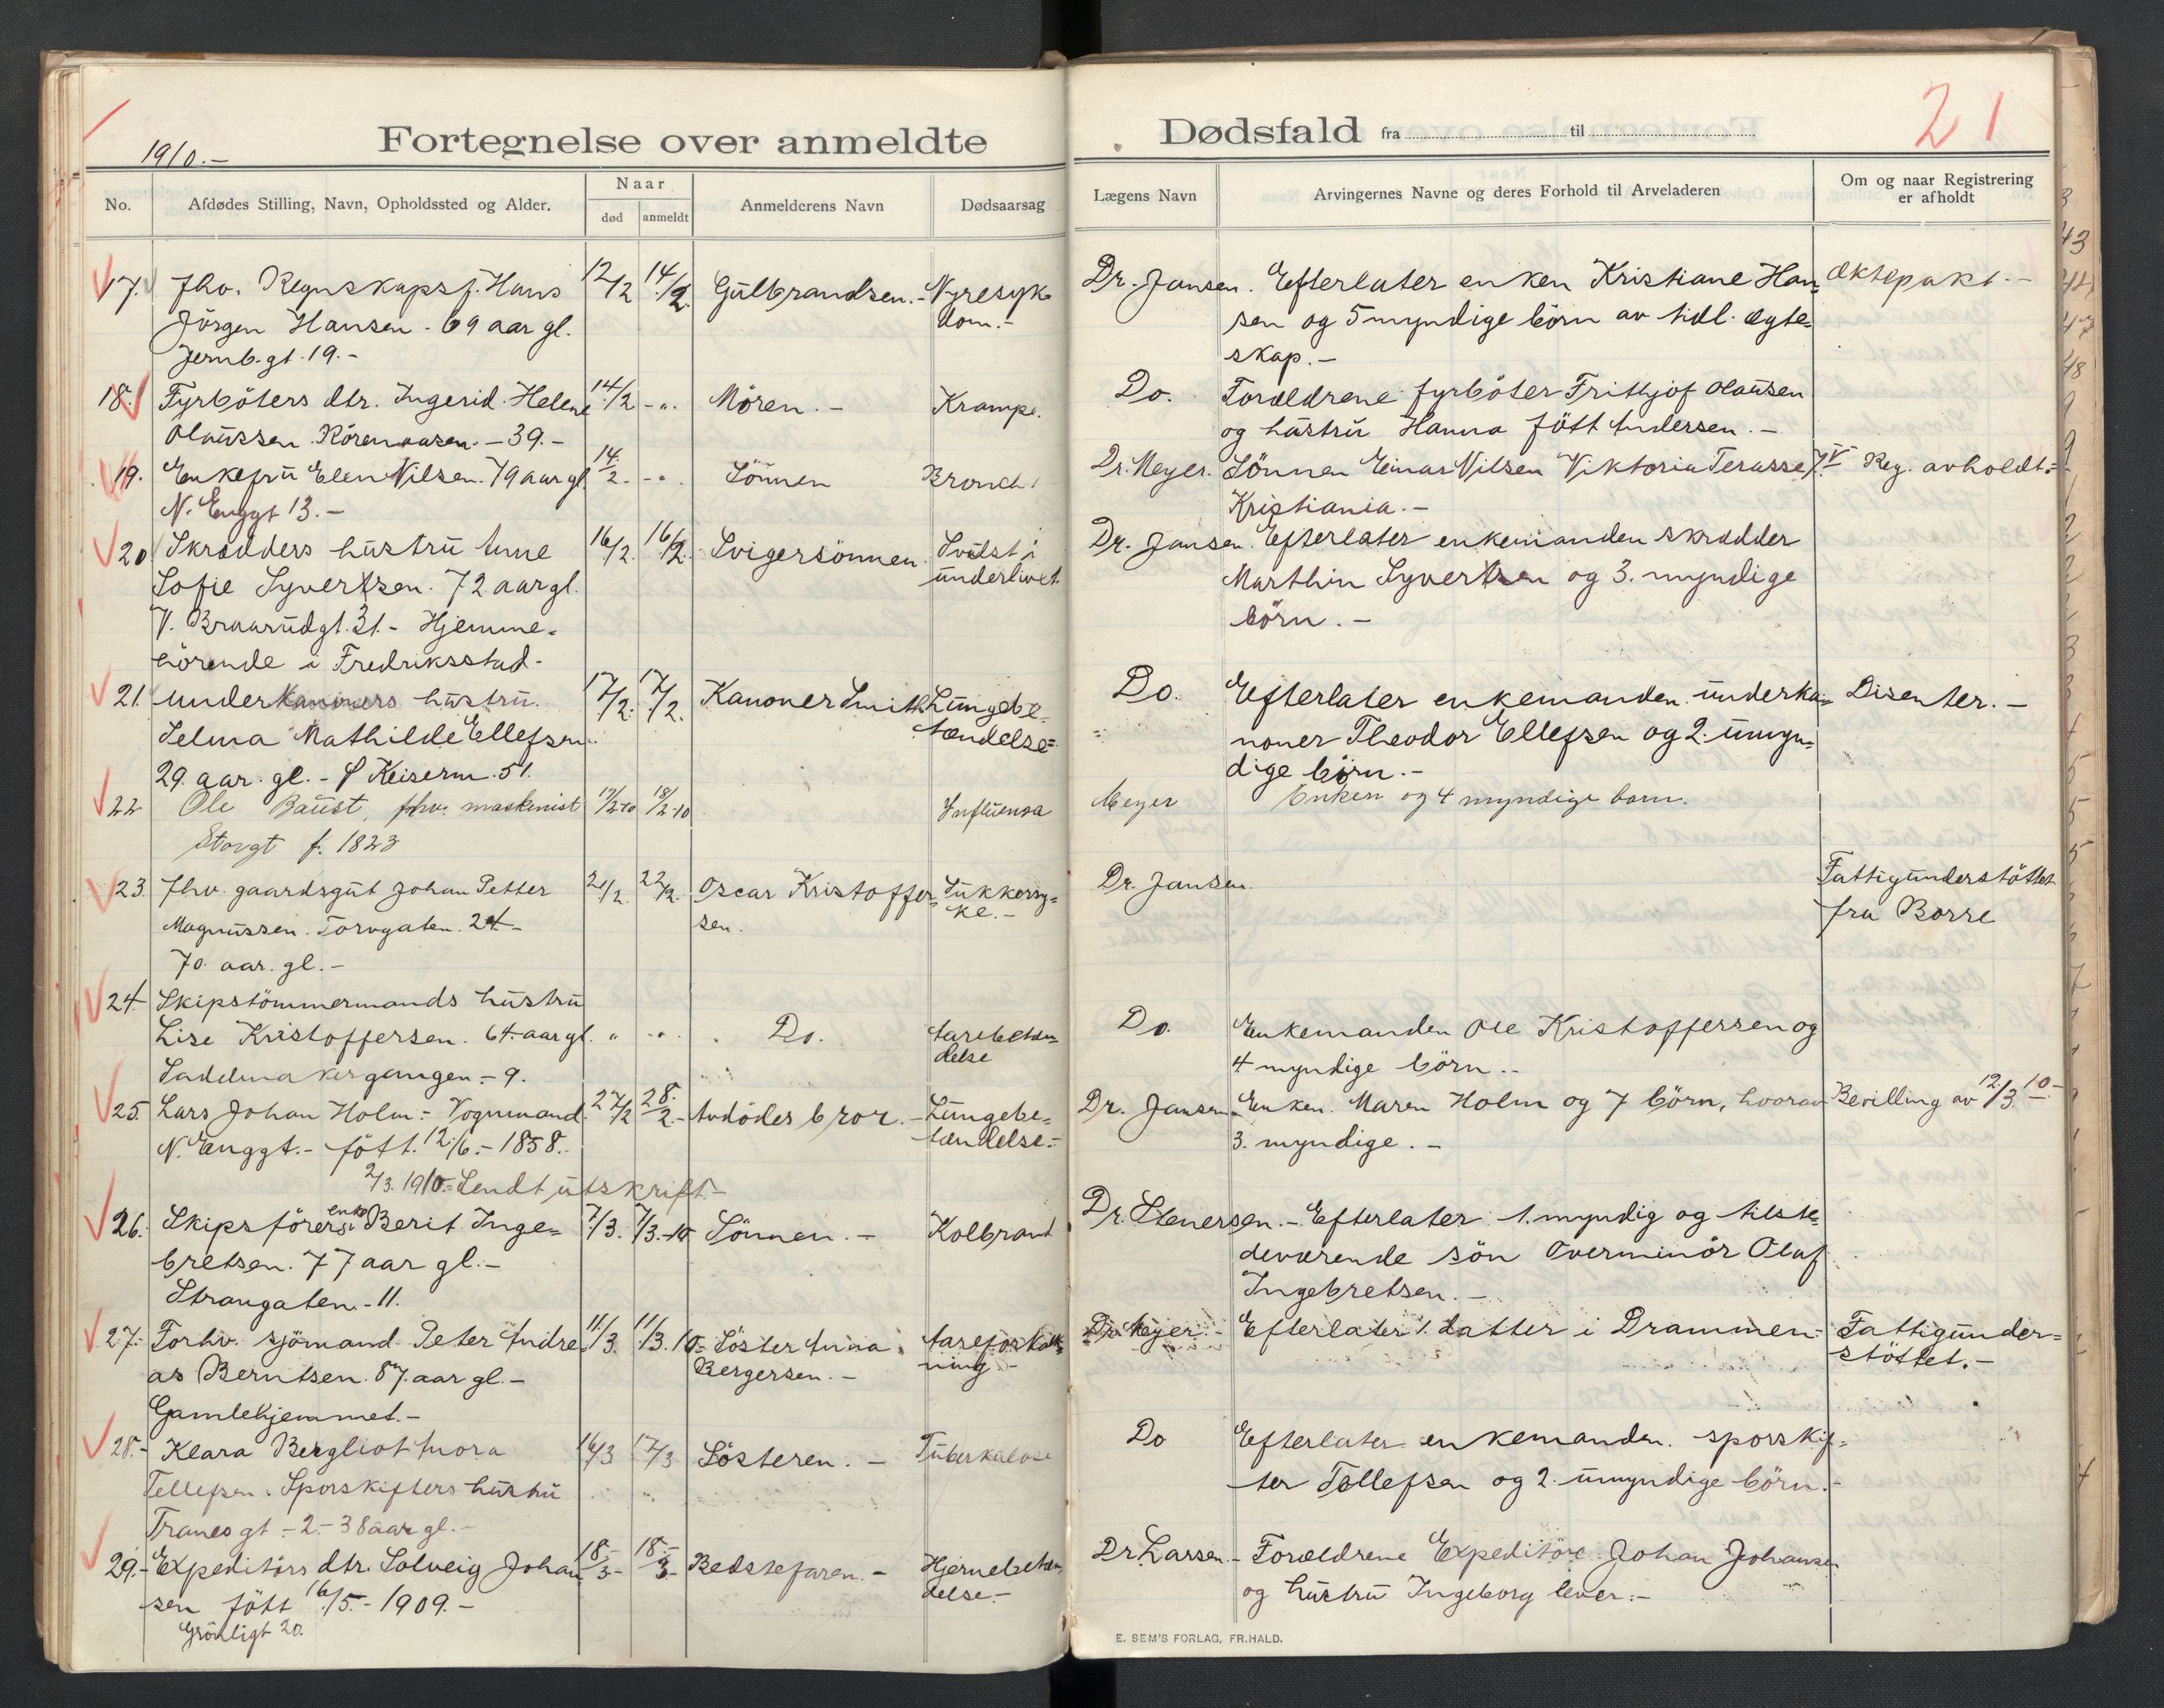 1910.-
Fortegnelse over anmeldte
No.
Afdødes Stilling, Navn, Opholdssted og Alder.
Naar
død
anmeldt
Anmelderens Navn
Dødsaarsag
17. fhv. Regnskapsf. Hans 12/2 14/2. Gülbrandsen.- Nyresyk
Jörgen Hansen - 69 aar gl. dom.-
Jernb.gt. 19.-
18. Fyrböters dtr. Ingerid Helene 14/2 -"- Mören.- Krampe.
Olaüssen. - 39.-
19. Enkefrü Elen Nilsen. 79 aar gl. 14/2. -"- Sönnen Bronch
N. Enggt 13.-
20. Skrædders hüstrü Anne 16/2. 16/2. Svigersönnen. Svülst i
Sofie Syvertsen. 72 aar gl. ünderlivet
V. Braarüdgt. 31.- Hjemme-
hörende i Fredriksstad-
21. Underkanoners hüstrü. 17/2. 17/2. Kanoner Smith Lüngebe-
Selma Mathilde Ellefsen. tændelse-
29. aar. gl. - Keiserm. 51.
22 Ole Baüst, fhv. maskinist 17/2 10 18/2 10 Inflüensa
Storgt f. 1823
23. fhv. gaardsgüt Johan Petter 21/2. 22/2. Oscar Kristoffer- Sükkersy-
Magnüssen. Torvgaten. 24- sen. ke.-
70. aar. gl.-
24- Skipstömmermands hüstrü
Lise Kristoffersen. 64 aar gl. " -"- Do. Aarebetæn-
delse
Sadelmakergangen.- 9.
25. Lars Johan Holm.- Vognmand. 27/2 28./2.- Avdödes bror.- Lüngebe-
N. Enggt.- fött. 12./6.- 1858.- tændelse.-
2/3. 1910.- Sendt ütskrift.-
26. Skipsförers enke Berit Inge- 7/3. 7/3.-10 Sönnen.- Kolbrand
bretsen. 77 aar gl.-
Strangaten.- 11.
27.- Forhv. sjömand Peter Andre- 11/3. 11/3. 10- Söster Anna Aareforkalk-
as Berntsen. 87. aar gl.- Bergersen.- ning.-
Gamlehjemmet.-
28.- Klara Bergliot Nora 16/3 17/3 Sösteren.- Tüberkülose
Tellefsen. Sporskifters hüstrü
Tranes gt - 2.- 38 aar gl.-
29.- Expeditörs dtr. Solveig Johan- 18/3- 18/3- Bedstefaren.- Hjernebetæn-
sen fött 16/5.- 1909.- delse.-
Grönligt 20.
Dødsfald fra til
21
Lægens Navn
Arvingernes Navne og deres Forhold til Arveladeren
Om og naar Registrering
er afholdt
Dr. Jansen. Efterlater enken Kristiane Han- Ektepakt.-
sen og 5 myndige börn av tidl. ægte-
skap.-
Do. Forældrene fyrböter Frithjof Olaüsen
og hüstrü Hanna fött Andersen.-
Dr. Meyer. Sönnen Einar Nilsen Viktoria Terasse 7. Reg. avholdt.-
Kristiania.-
Dr. Jansen. Efterlater enkemanden skrædder
Marthin Syvertsen og 3. myndige
börn.-
Do. Efterlater enkemanden ünderka- Disenter.-
noner Theodor Ellefsen og 2. ümyn-
dige börn.-
Meyer Enken og 4 myndige barn.
Dr. Jansen. Fattigünderstöttet
fra Borre
Do. Enkemanden Ole Kristoffersen og
4 myndige börn..
Dr. Jansen- Enken. Maren Holm og 7 börn, hvorav Bevilling av 12./3. 10.-
3. myndige.-
Dr. Stenersen.- Efterlater 1. myndig og tilste-
deværende sön Overminör Olaf
Ingebretsen.-
Dr. Meyer.- Efterlater 1. datter i Drammen.- Fattigünder-
støttet.-
Do Efterlater enkemanden. sporskif-
ter Tellefsen og 2. ümyndige börn.-
Dr. Larsen.- Forældrene Expeditör Johan Johansen
og hüstrü Ingeborg lever.-
E. SEM'S FORLAG, FR.HALD.